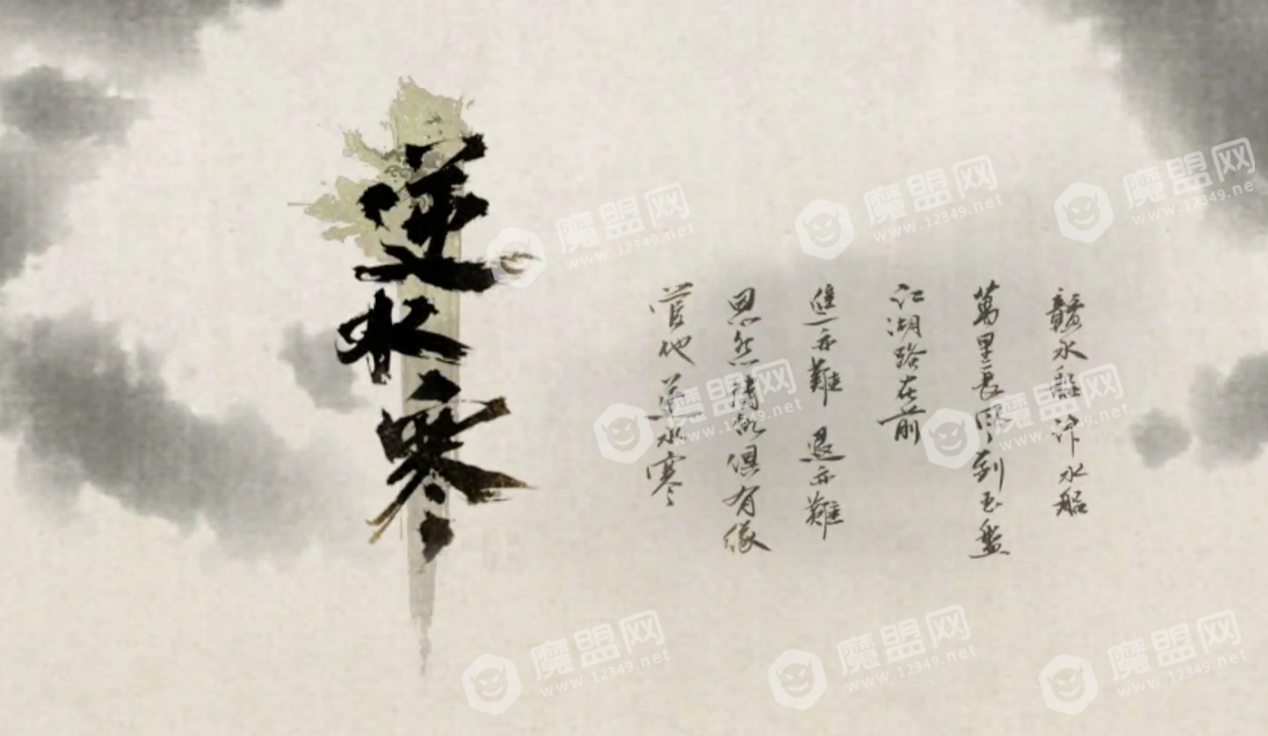 逆水寒
水 汴水船
萬里長風到玉盤
江湖路在前
進亦難 退亦難
恩怨情仇俱有緣
管他逆水寒
魔盟网
www.12349.net
魔盟网
www.12349.net
魔盟网
www.12349.ne
魔盟网
www.12349.net
魔盟网
www.12349.net
魔盟网
www.12349.net
魔盟网
www.12349.net
魔盟网
www.12349.net